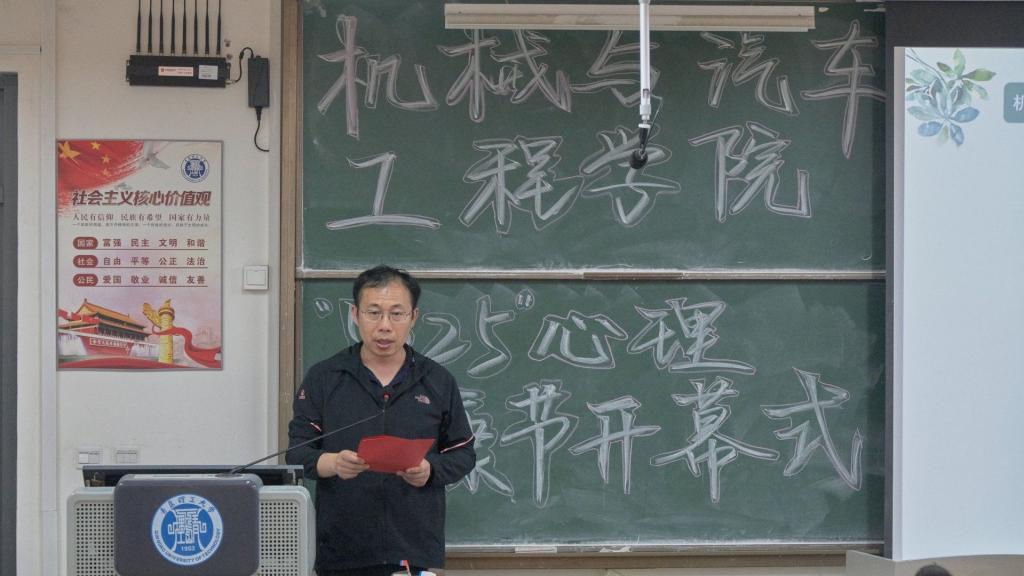 机械与汽车
工程学院
"5·25"心理
康节开幕式
社会主义核心价值观
人民有信仰 民族有希望 国家有力量
国家 富强 民主 文明 和谐
社会 自由 平等 公正 法治
公民 爱国 敬业 诚信 友善
青岛理工大学
1953
QINGDAO UNIVERSITY OF TECHNOLOGY
机